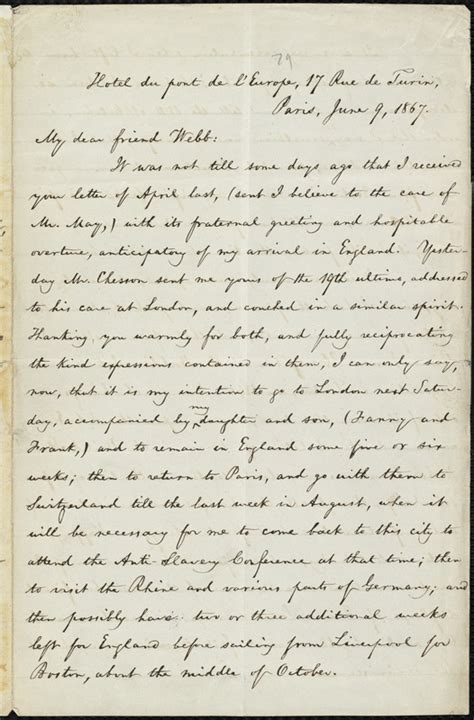 79
Hotel du pont de l'Europe, 17 Rue de Turin,
Paris, June 9, 1867.
My dear friend Webb:
It was not till some days ago that I received
your letter of April last, (sent I believe to the care of
Mr. May,) with its fraternal greeting and hospitable
overture, anticipatory of my arrival in England. Yester-
day Mr. Chesson sent me yours of the 19th ultimo, addressed
to his care at London, and couched in a similar spirit.
Thanking you warmly for both, and fully reciprocating
the kind expressions contained in them, I can only say,
now, that it is my intention to go to London next Satur-
day, accompanied by my daughter and son, (Fanny and
Frank,) and to remain in England some five or six
weeks; then to return to Paris, and go with them to
Switzerland till the last week in August, when it
will be necessary for me to come back to this city to
attend the Anti-Slavery Conference at that time; then
to visit the Rhine and various parts of Germany; and
then possibly have two or three additional weeks
left for England before sailing from Liverpool for
Boston, about the middle of October.